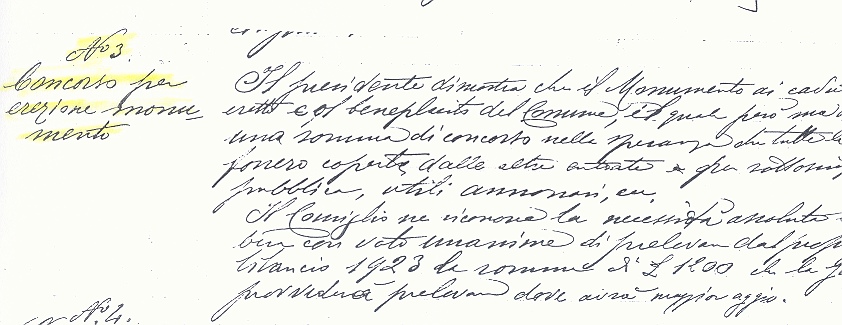 No 3.
Concorso per
erezione monu-
mento
Il presidente dimostra che il Monumento ai cadu
eretto col beneplacito del Comune, il quale però ma
una somma di concorso nella speranza che tutte le
fossero coperte dalle altre entrate e per sottoscri
pubblica, utili annonari, ecc.
Il Consiglio ne riconosce la necessità assoluta
con voto unanime di prelevare dal
bilancio 1923 la somma di £ che la
provvederà prelevare dove avrà maggior aggio.
No 4.